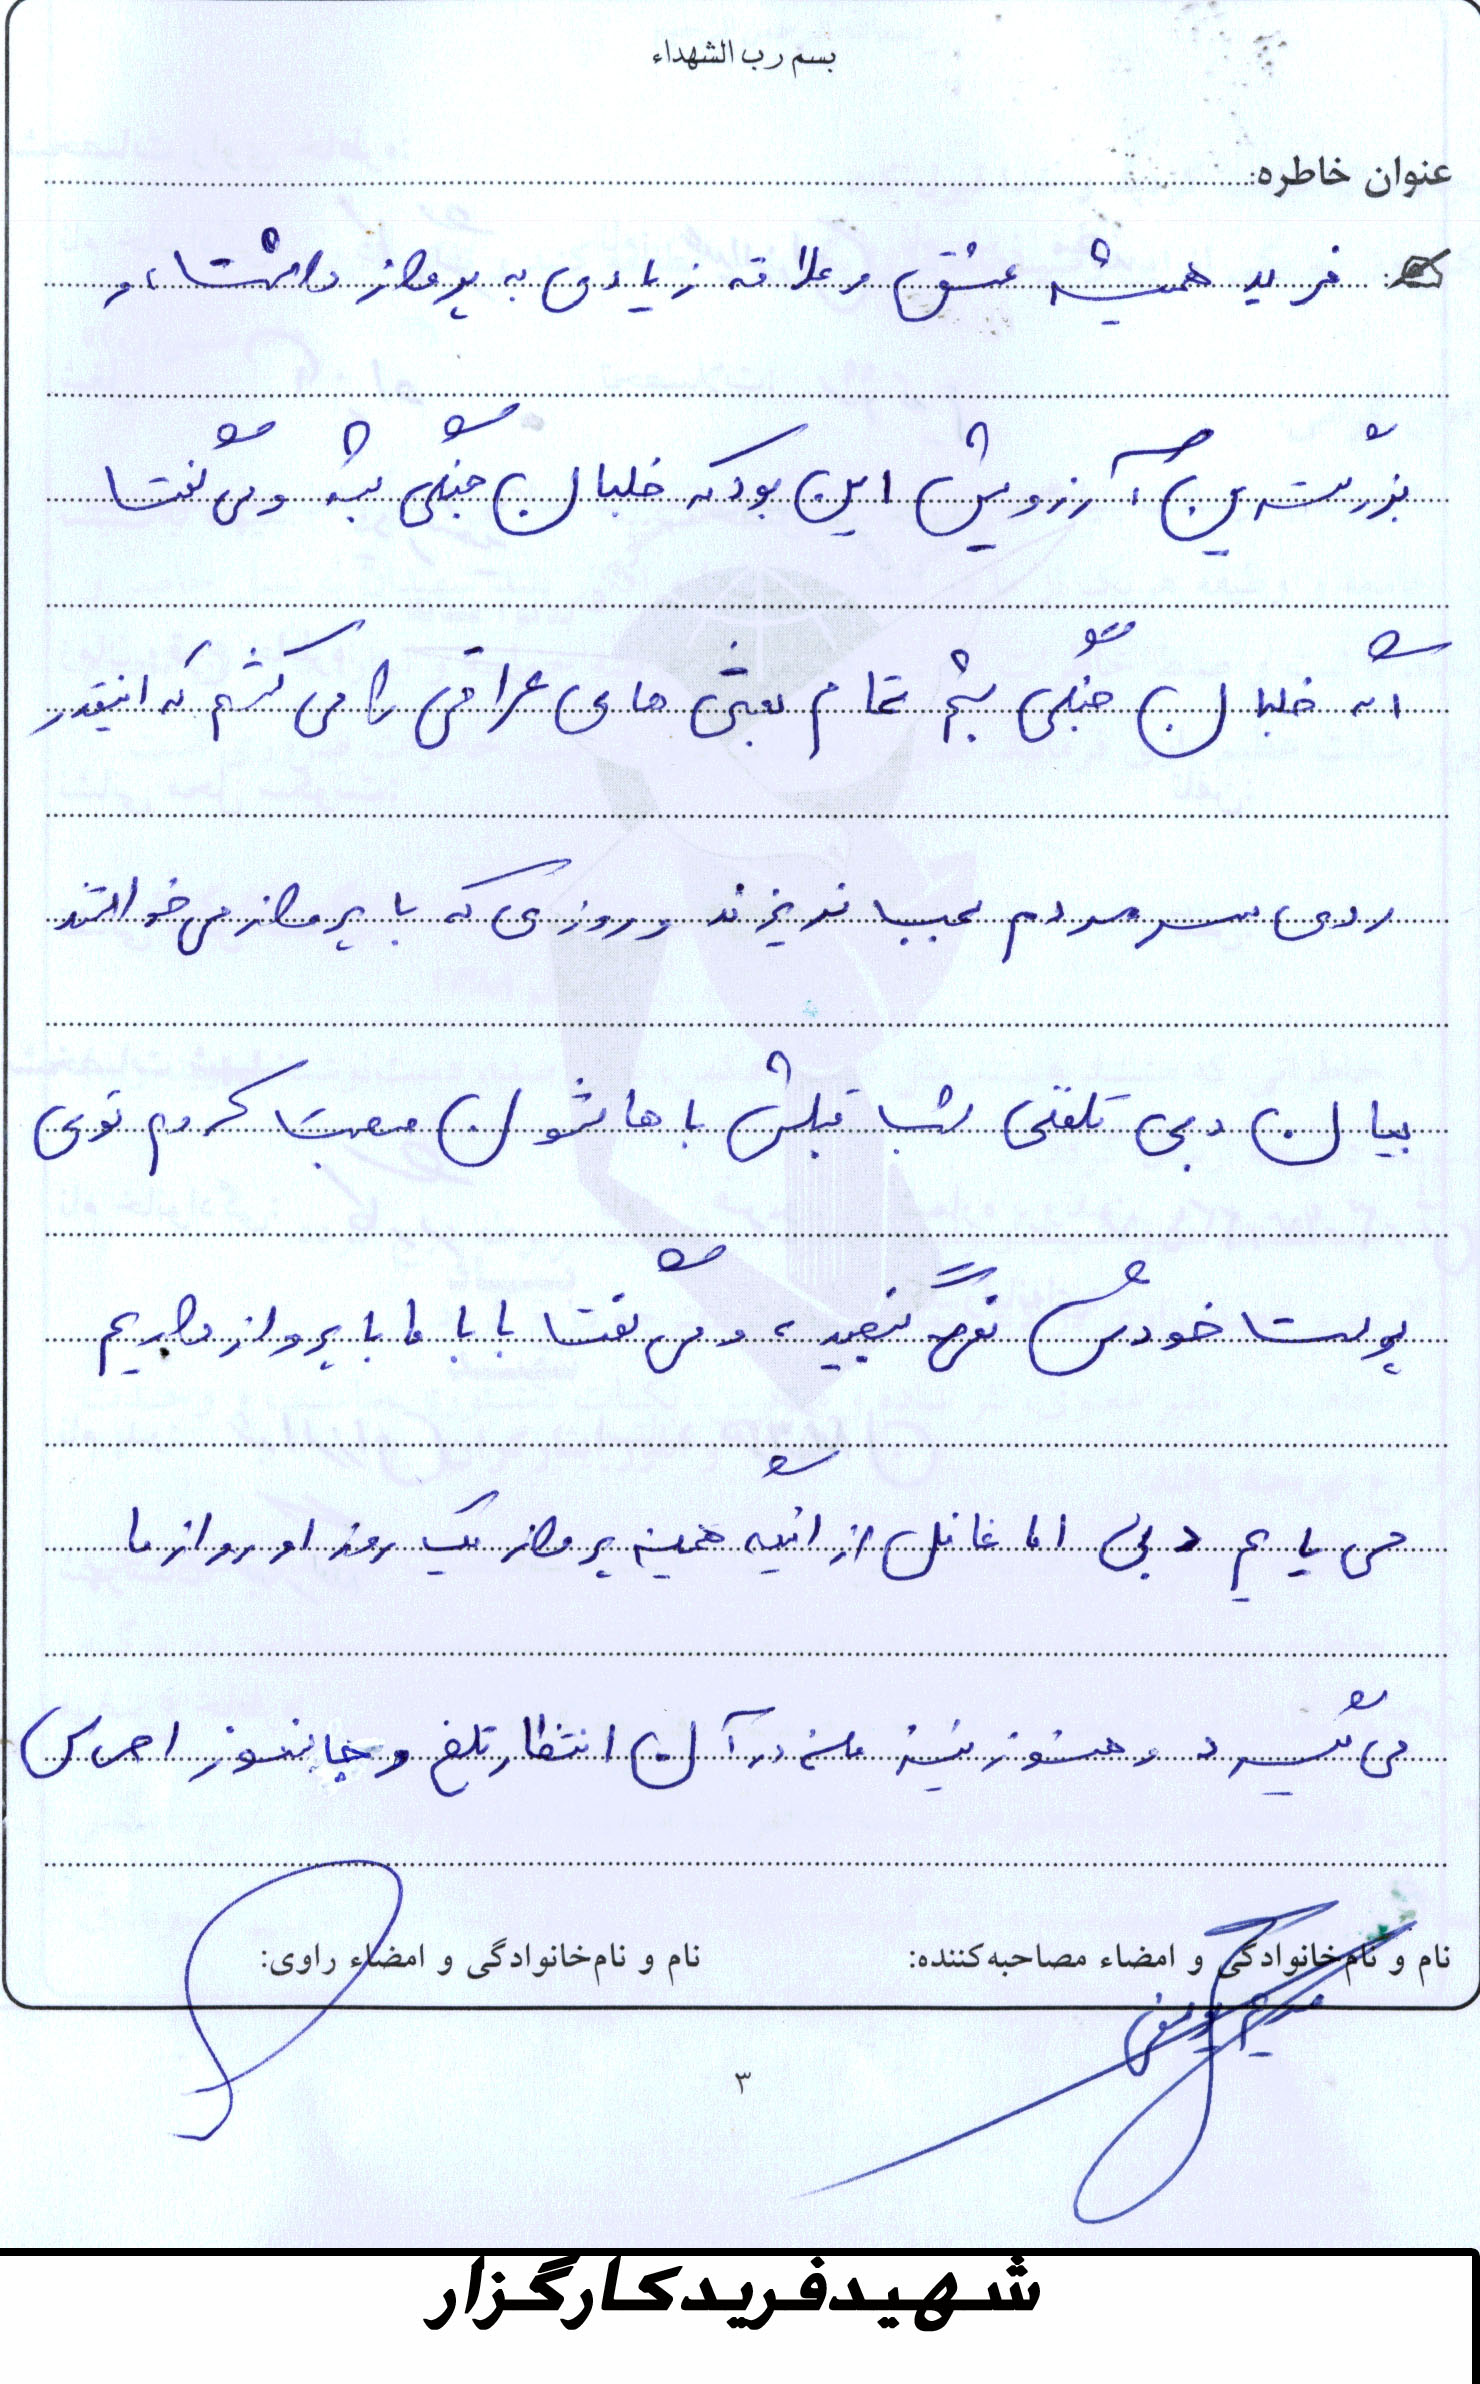 بسم رب الشهداء
عنوان خاطره:
فرید همیشه عشق و علاقه زیادی به پرواز داشت، و
بزرگترین آرزویش این بود که خلبان جنگی بشه و می گفت
اگه خلبان جنگی بشم تمام بعثی های عراقی را می کشم که اینقدر
روی سر مردم بمب نریزند و روزی که با پرواز می خواستند
بیان دبی تلفنی شب قبلش باهاشون صحبت کردم توی
پوست خودش نمی گنجید، و می گفت بابا ما با پرواز داریم
می یایم دبی اما غافل از اینکه همین پرواز یک روز او رو از ما
می گیرد و هنوز نیز در آن انتظار تلخ و جانسوز احساس
نام و نام‌خانوادگی و امضاء مصاحبه‌کننده:
نام و نام‌خانوادگی و امضاء راوی:
۳
شهیدفریدکارگزار